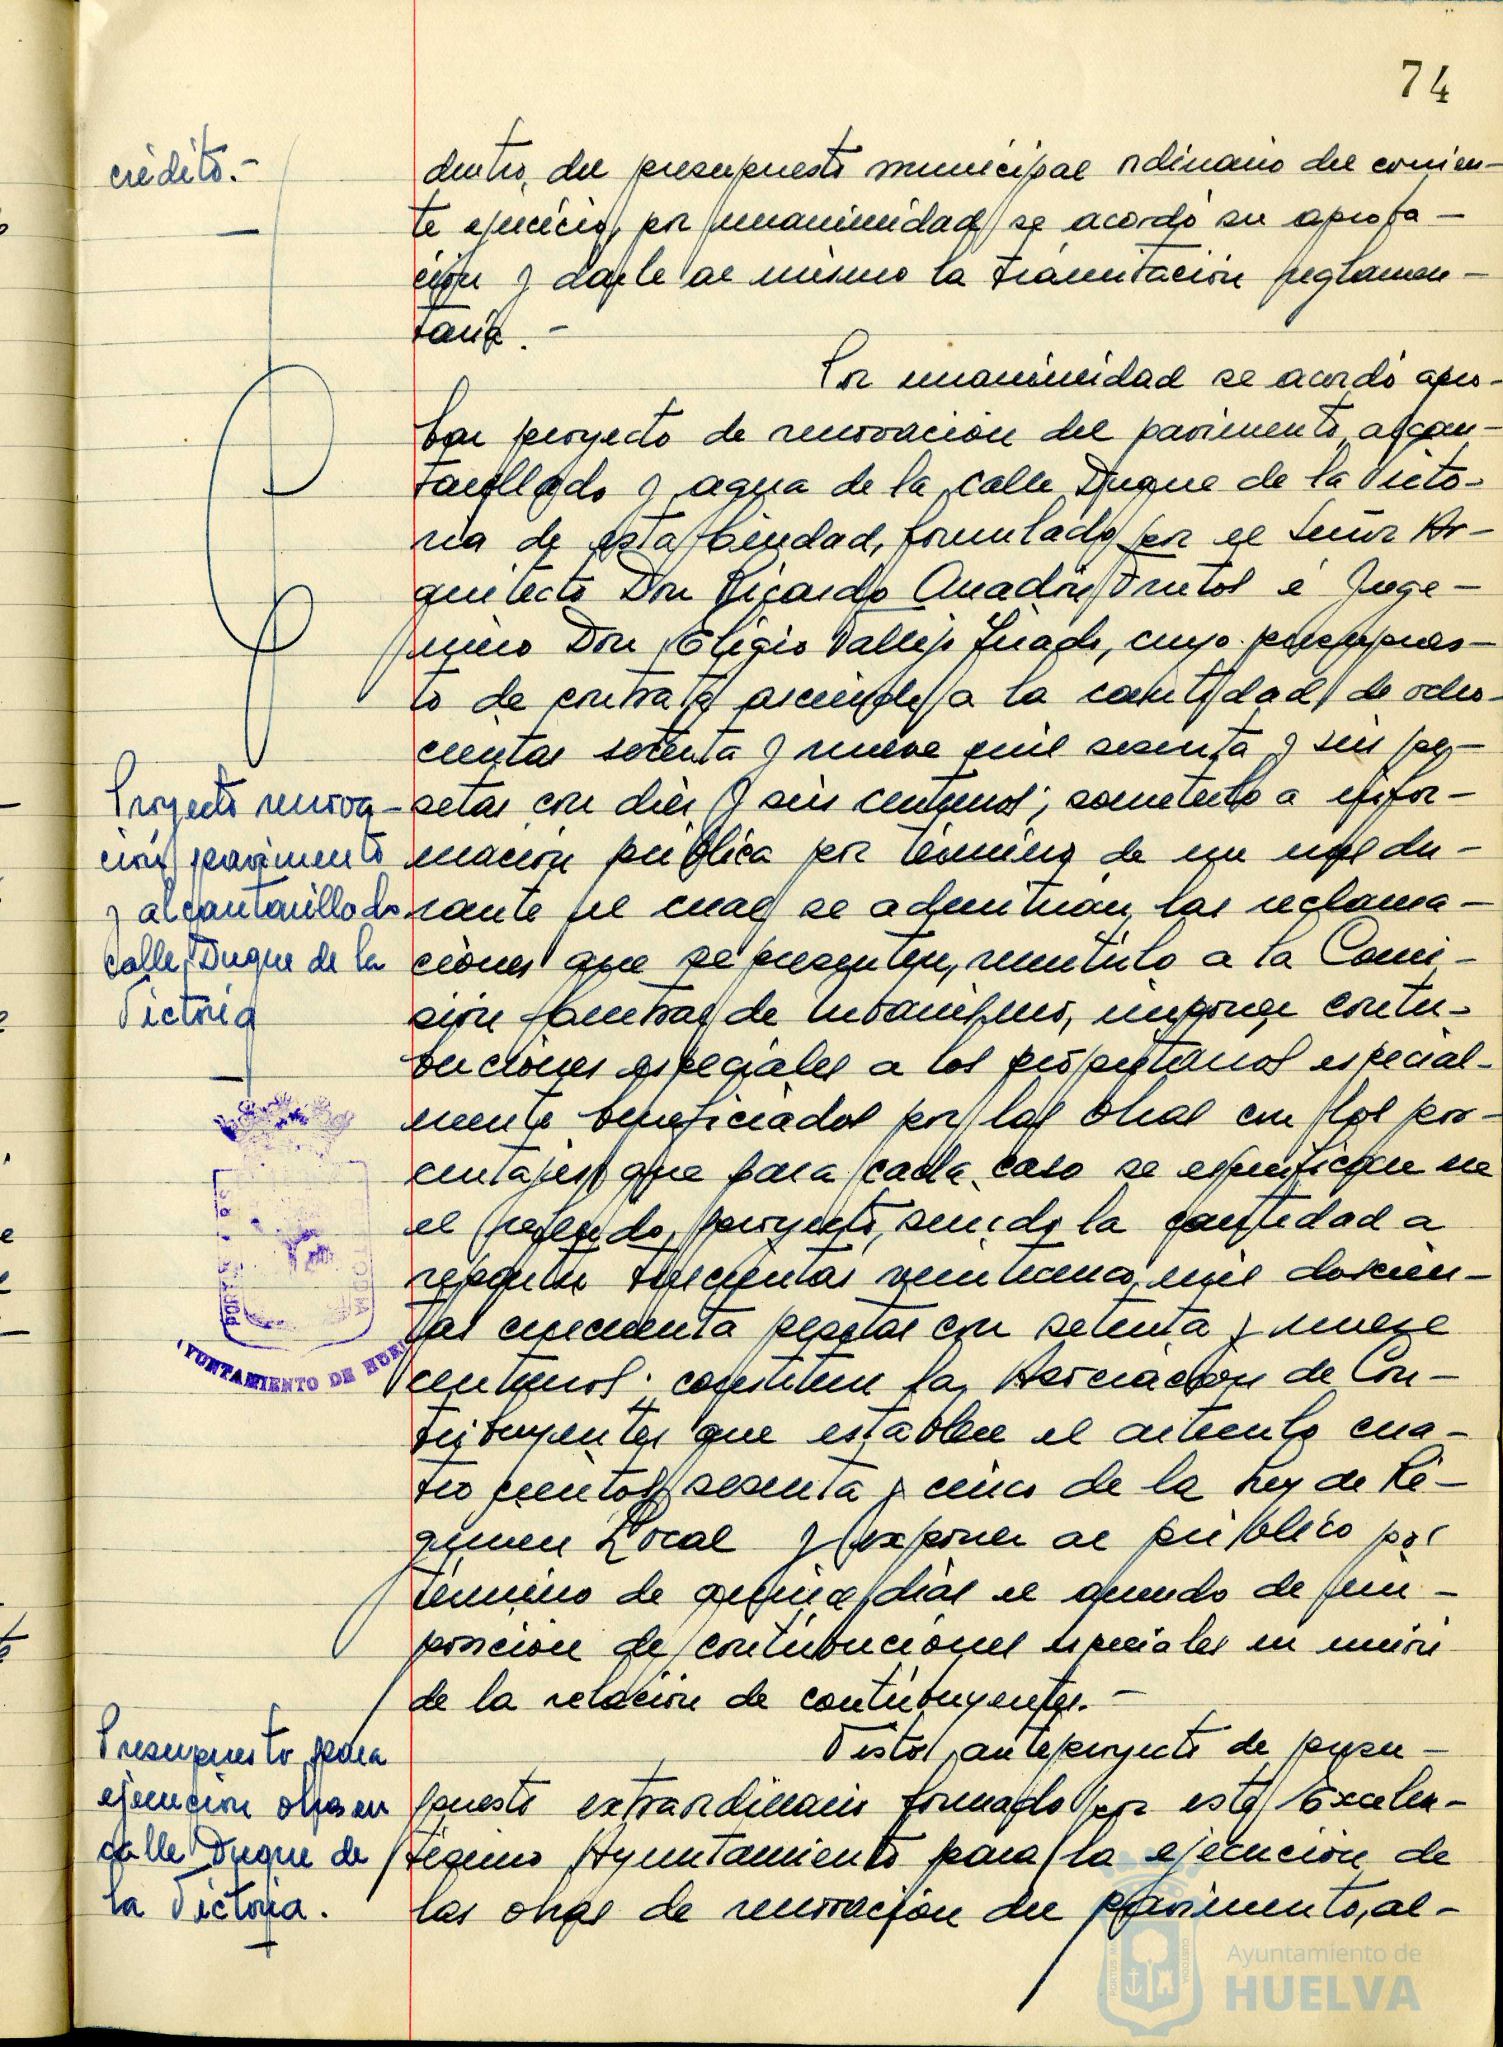 74
crédito.-
dentro del presupuesto municipal ordinario del corrien-
te ejercicio, por unanimidad se acordó su aproba-
ción y darle al mismo la tramitación reglamen-
taria.-
Por unanimidad se acordó apro-
bar proyecto de renovación del pavimento, alcan-
tarillado y agua de la calle Duque de la Victo-
ria de esta Ciudad, formulado por el Señor Ar-
quitecto Don Ricardo Anadón Frutos é Inge-
niero Don Eligio Vallejo, cuyo presupues-
to de contrata asciende a la cantidad de ocho-
cientas setenta y nueve mil sesenta y seis pe-
Proyecto renova-
ción pavimento
y alcantarillado
calle Duque de la
Victoria
setas con diez y seis centimos; someterlo a infor-
mación pública por término de un mes du-
rante el cual se admitirán las reclama-
ciones que se presenten, remitirlo a la Comi-
sión Central de Urbanismo, imponer contri-
buciones especiales a los propietarios especial-
mente beneficiados por las obras con los por-
centajes que para cada caso se especifican en
el referido proyecto, siendo la cantidad a
repartir trescientas veintiuna mil doscien-
tas cincuenta pesetas con setenta y nueve
centimos; constituir la Asociación de Con-
tribuyentes que establece el articulo cua-
trocientos sesenta y cinco de la Ley de Ré-
gimen Local y exponer al público por
término de quince dias el acuerdo de im-
posición de contribuciones especiales en unión
de la relación de contribuyentes.-
PORTUS CUSTODIA
AYUNTAMIENTO DE HUELVA
Presupuesto para
ejecución obras en
calle Duque de
la Victoria.
Visto anteproyecto de presu-
puesto extraordinario formado por este Excelen-
tísimo Ayuntamiento para la ejecución de
las obras de renovación del pavimento, al-
Ayuntamiento de
HUELVA